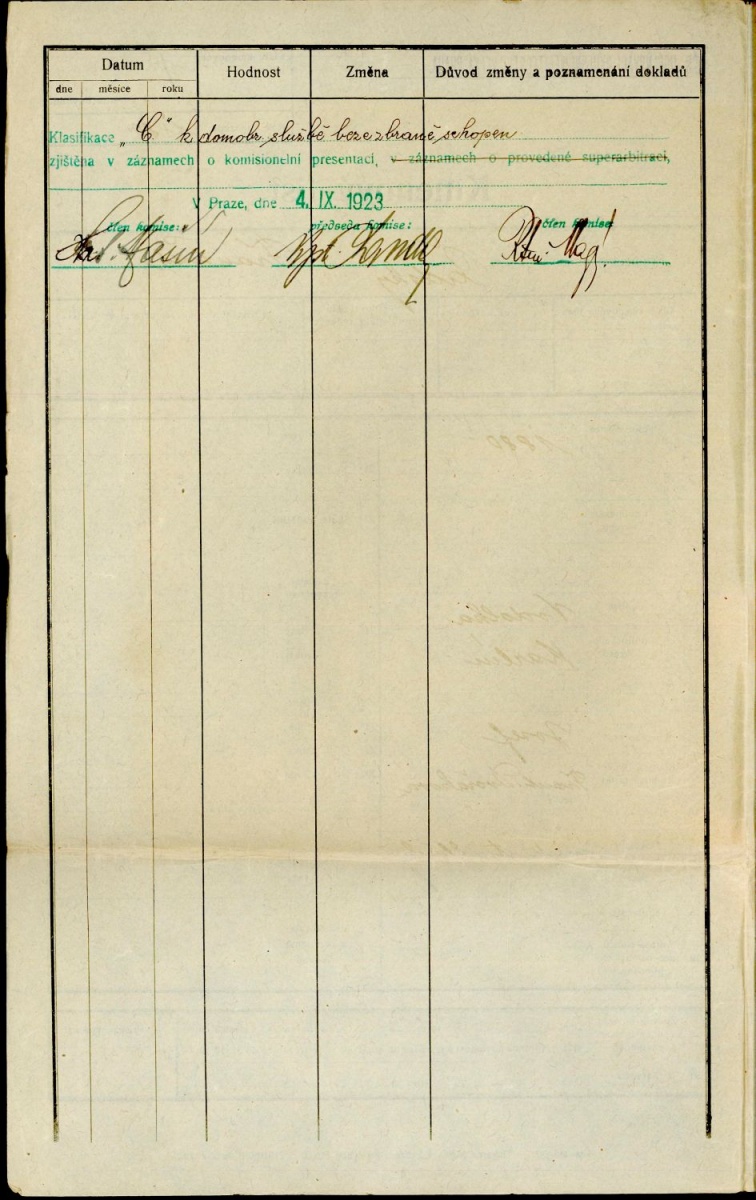 Datum Hodnost Změna Důvod změny a poznamenání dokladů
dne měsíce roku
Klasifikace „C“ k domobr. službě beze zbraně schopen
zjištěna v záznamech o komisionelní presentaci, v záznamech o provedené superarbitraci,
V Praze, dne 4. IX. 1923
člen komise: předseda komise: člen komise: